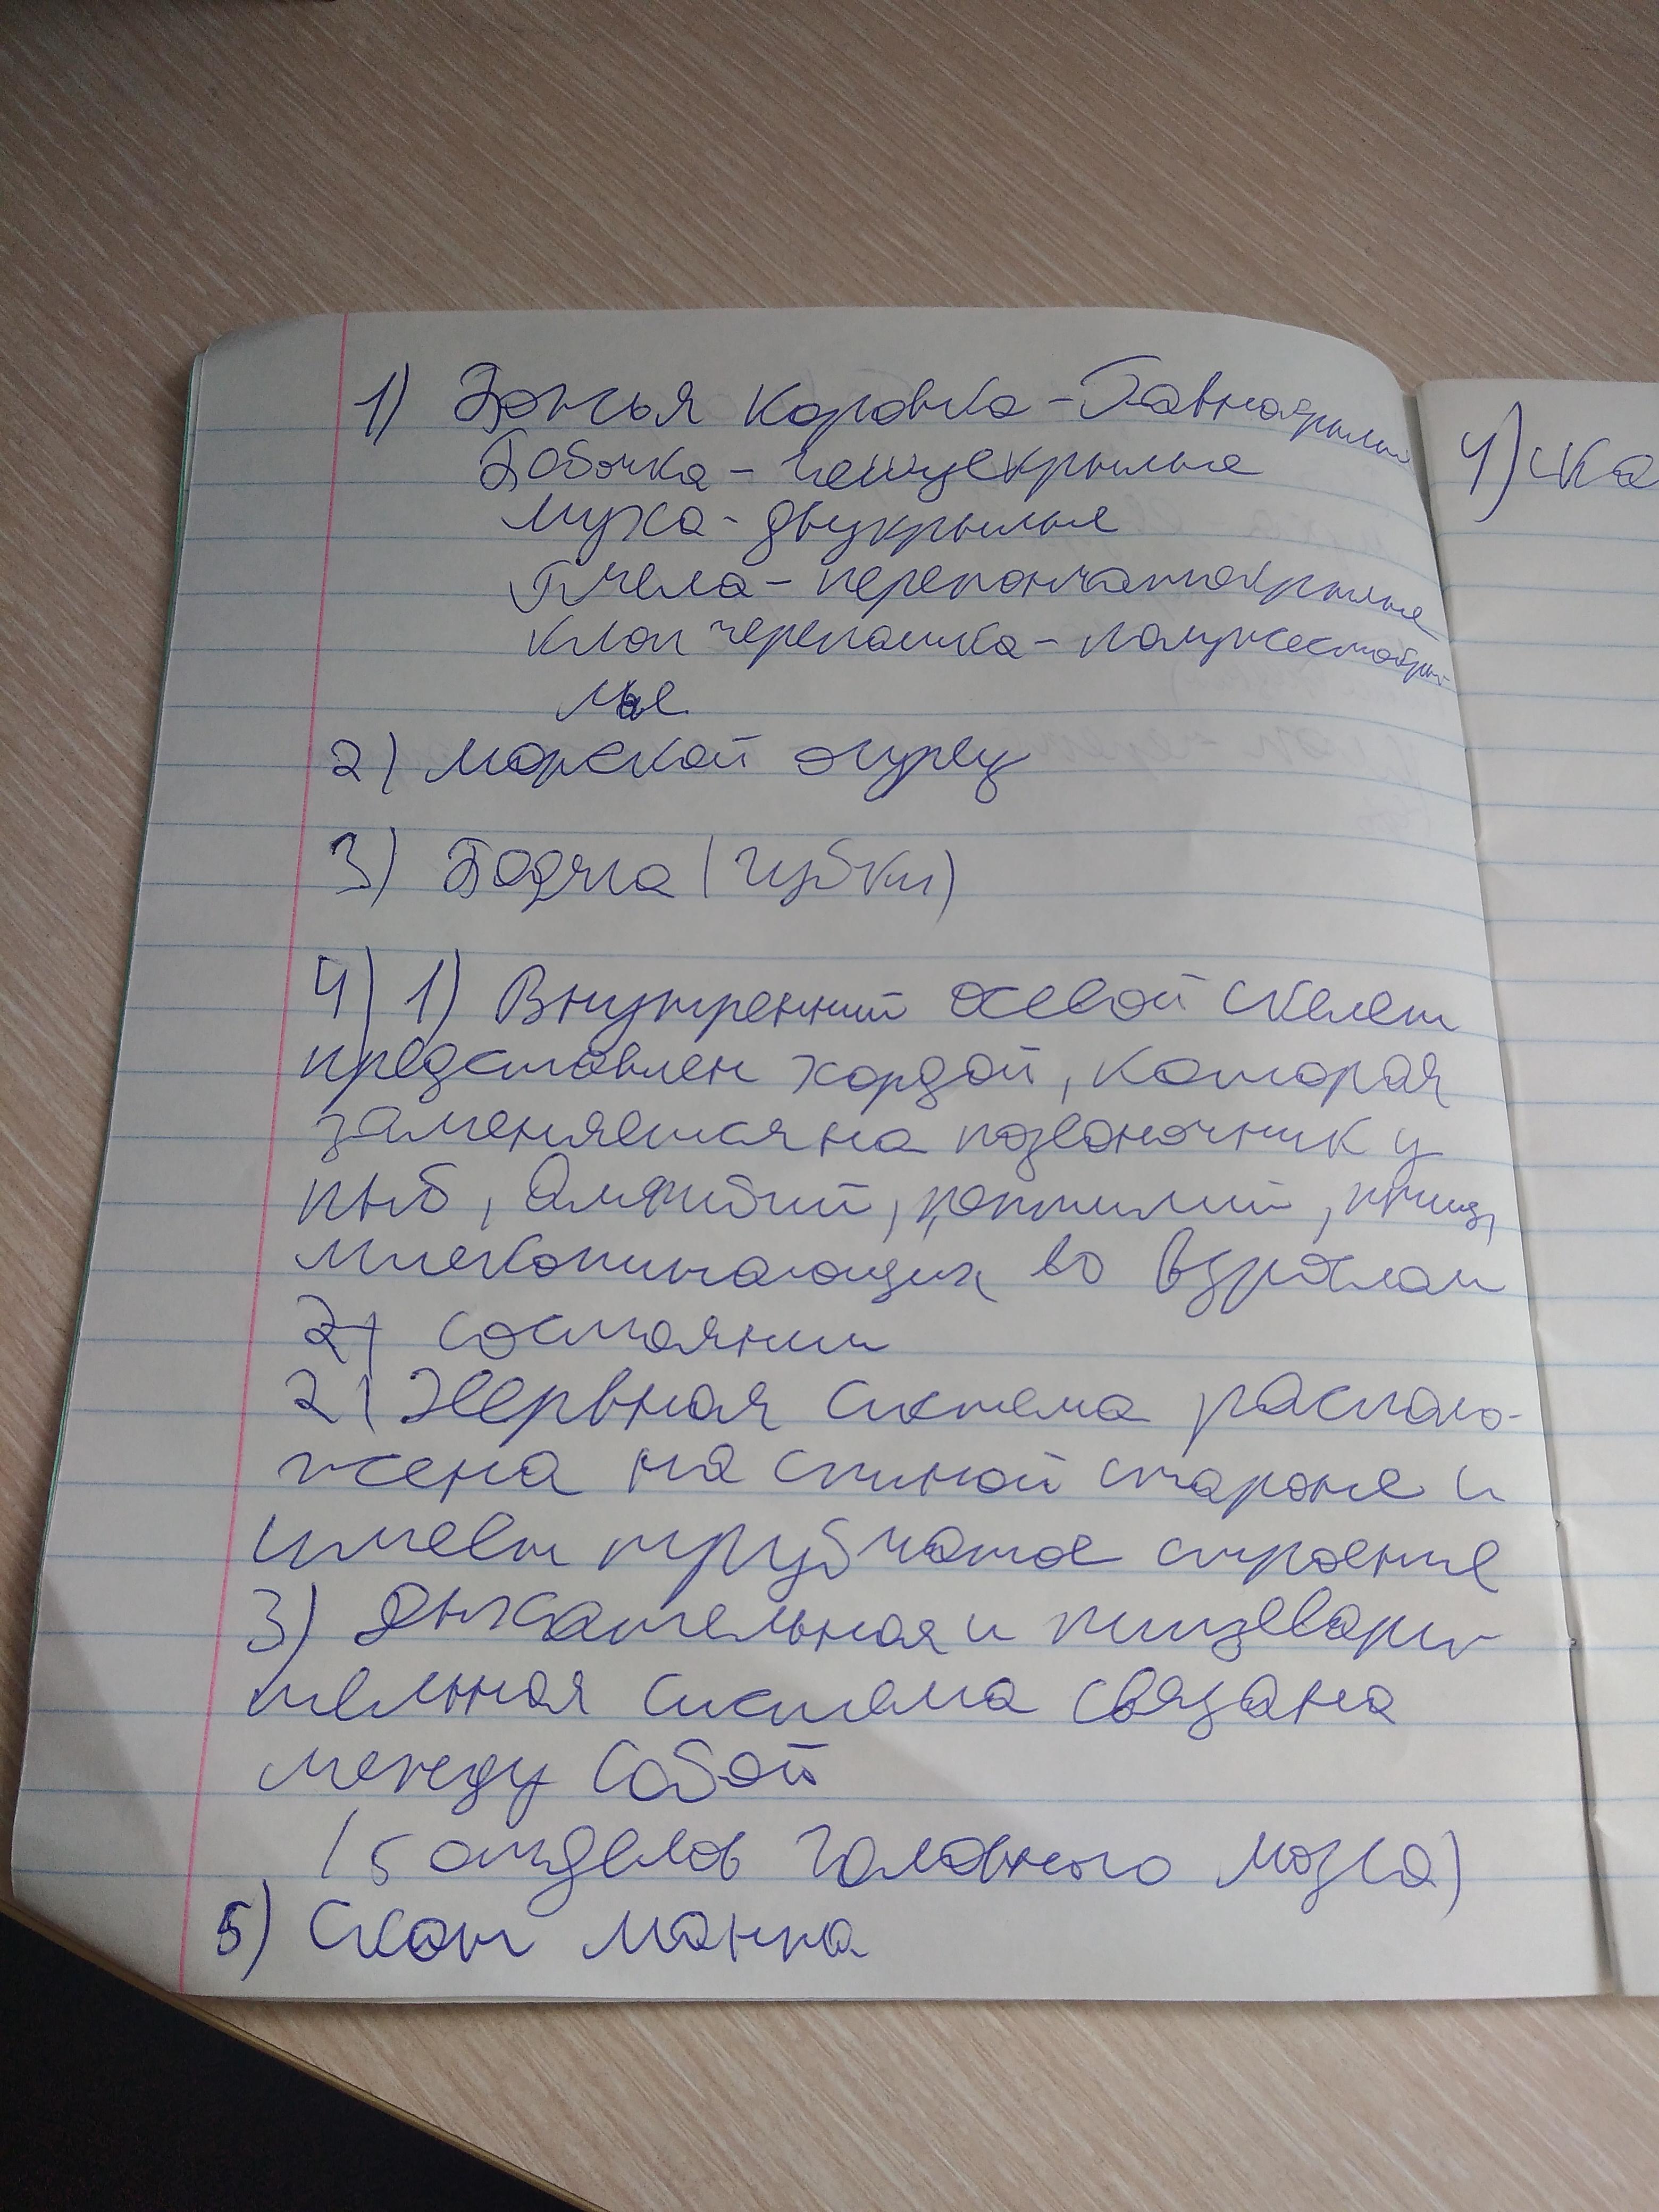 1) Божья коровка - Равнокрылы
Бабочка - чешуекрылые
муха - двукрылые
Пчела - перепончатокрылые
клоп черепашка - полужесткокры-
лые
2) морской огурец
3) Бодяга (губки)
4) 1) Внутренний осевой скелет
представлен хордой, которая
заменяется на позвоночник у
рыб, Амфибий, рептилий, птиц,
млекопитающих во взрослом
2) состоянии
2) Нервная система располо-
жена на спиной стороне и
имеет трубчатое строение
3) Дыхательная и пищевари-
тельная система связана
между собой
(5 отделов головного мозга)
5) Скат манта
4) ска